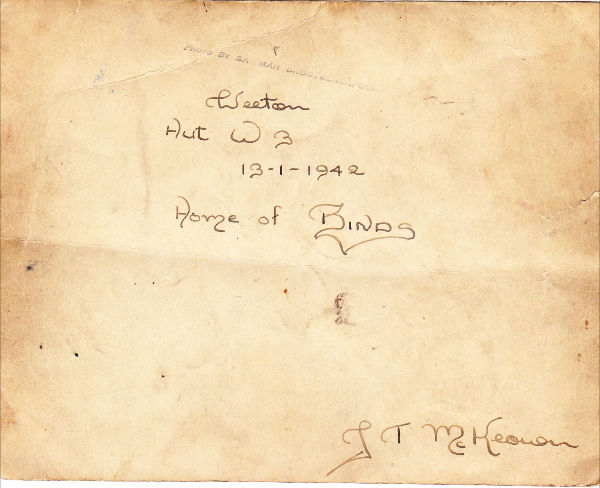 PHOTO BY BROS.
Weeton
Hut W 3
13-1-1942
Home of BINDS
J T McKeown